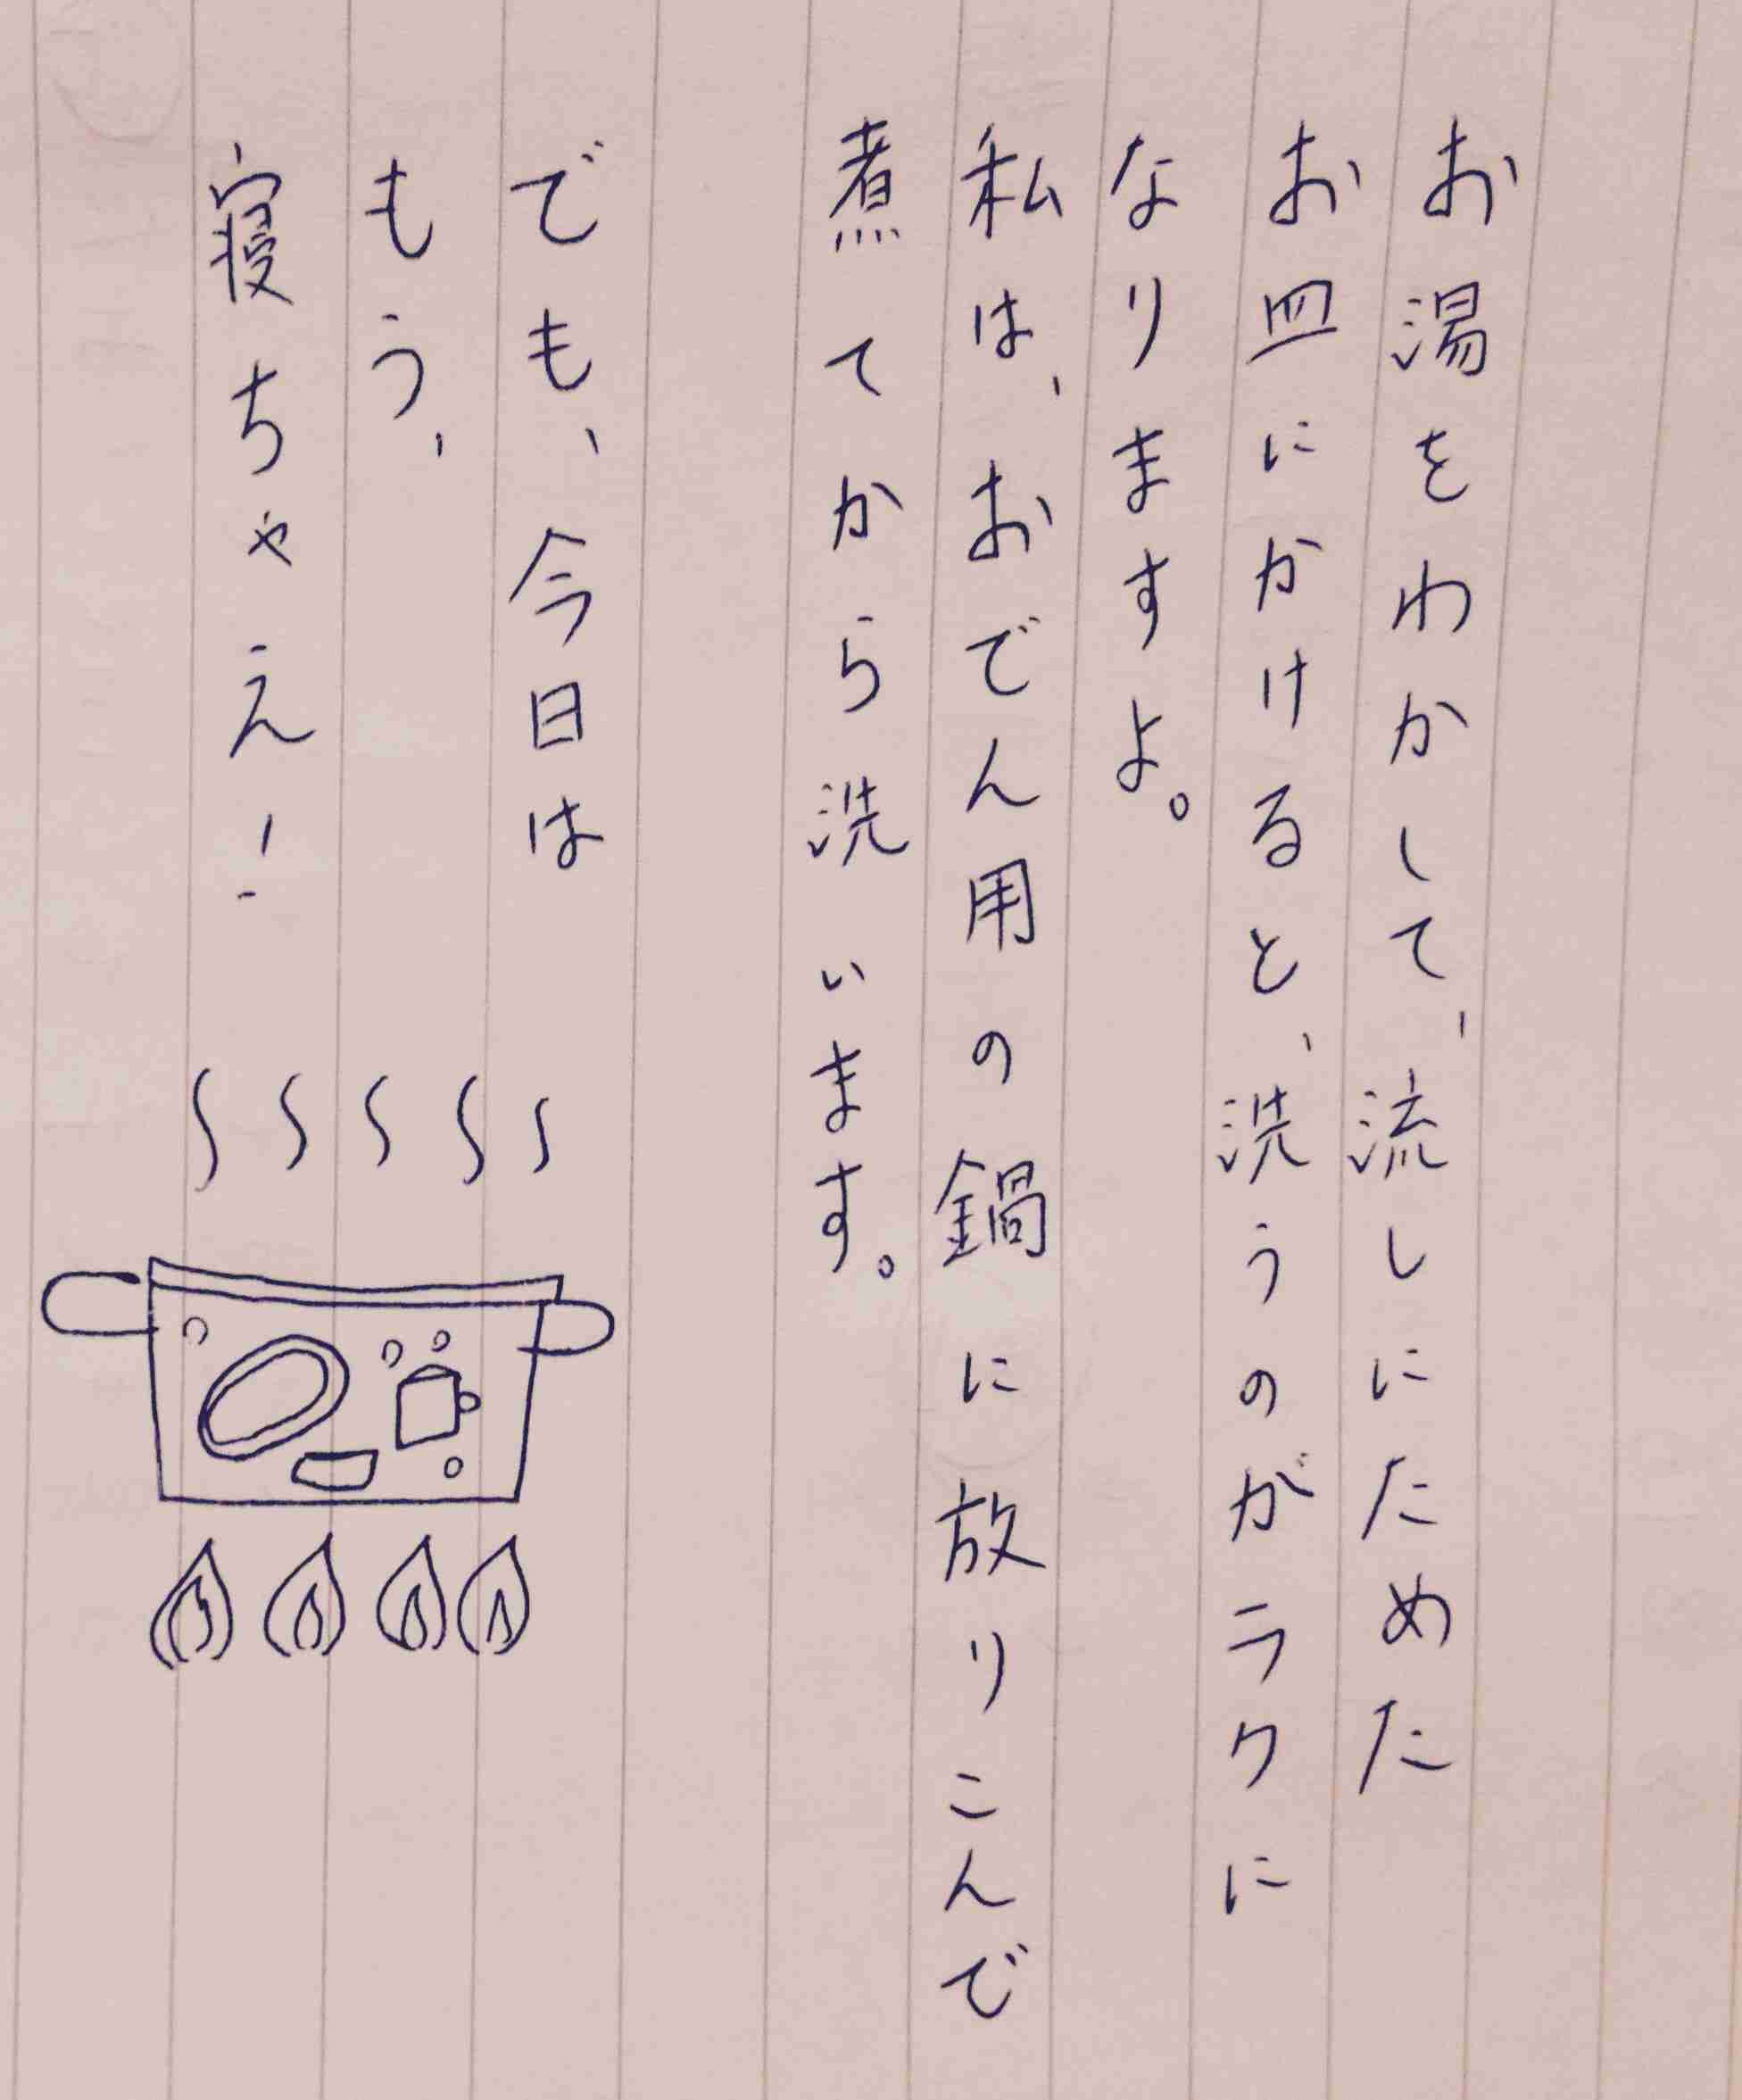 お湯をわかして、流しにためた
お皿にかけると、洗うのがラクに
なりますよ。
私は、おでん用の鍋に放りこんで
煮てから洗います。
でも、今日は
もう、
寝ちゃえ!